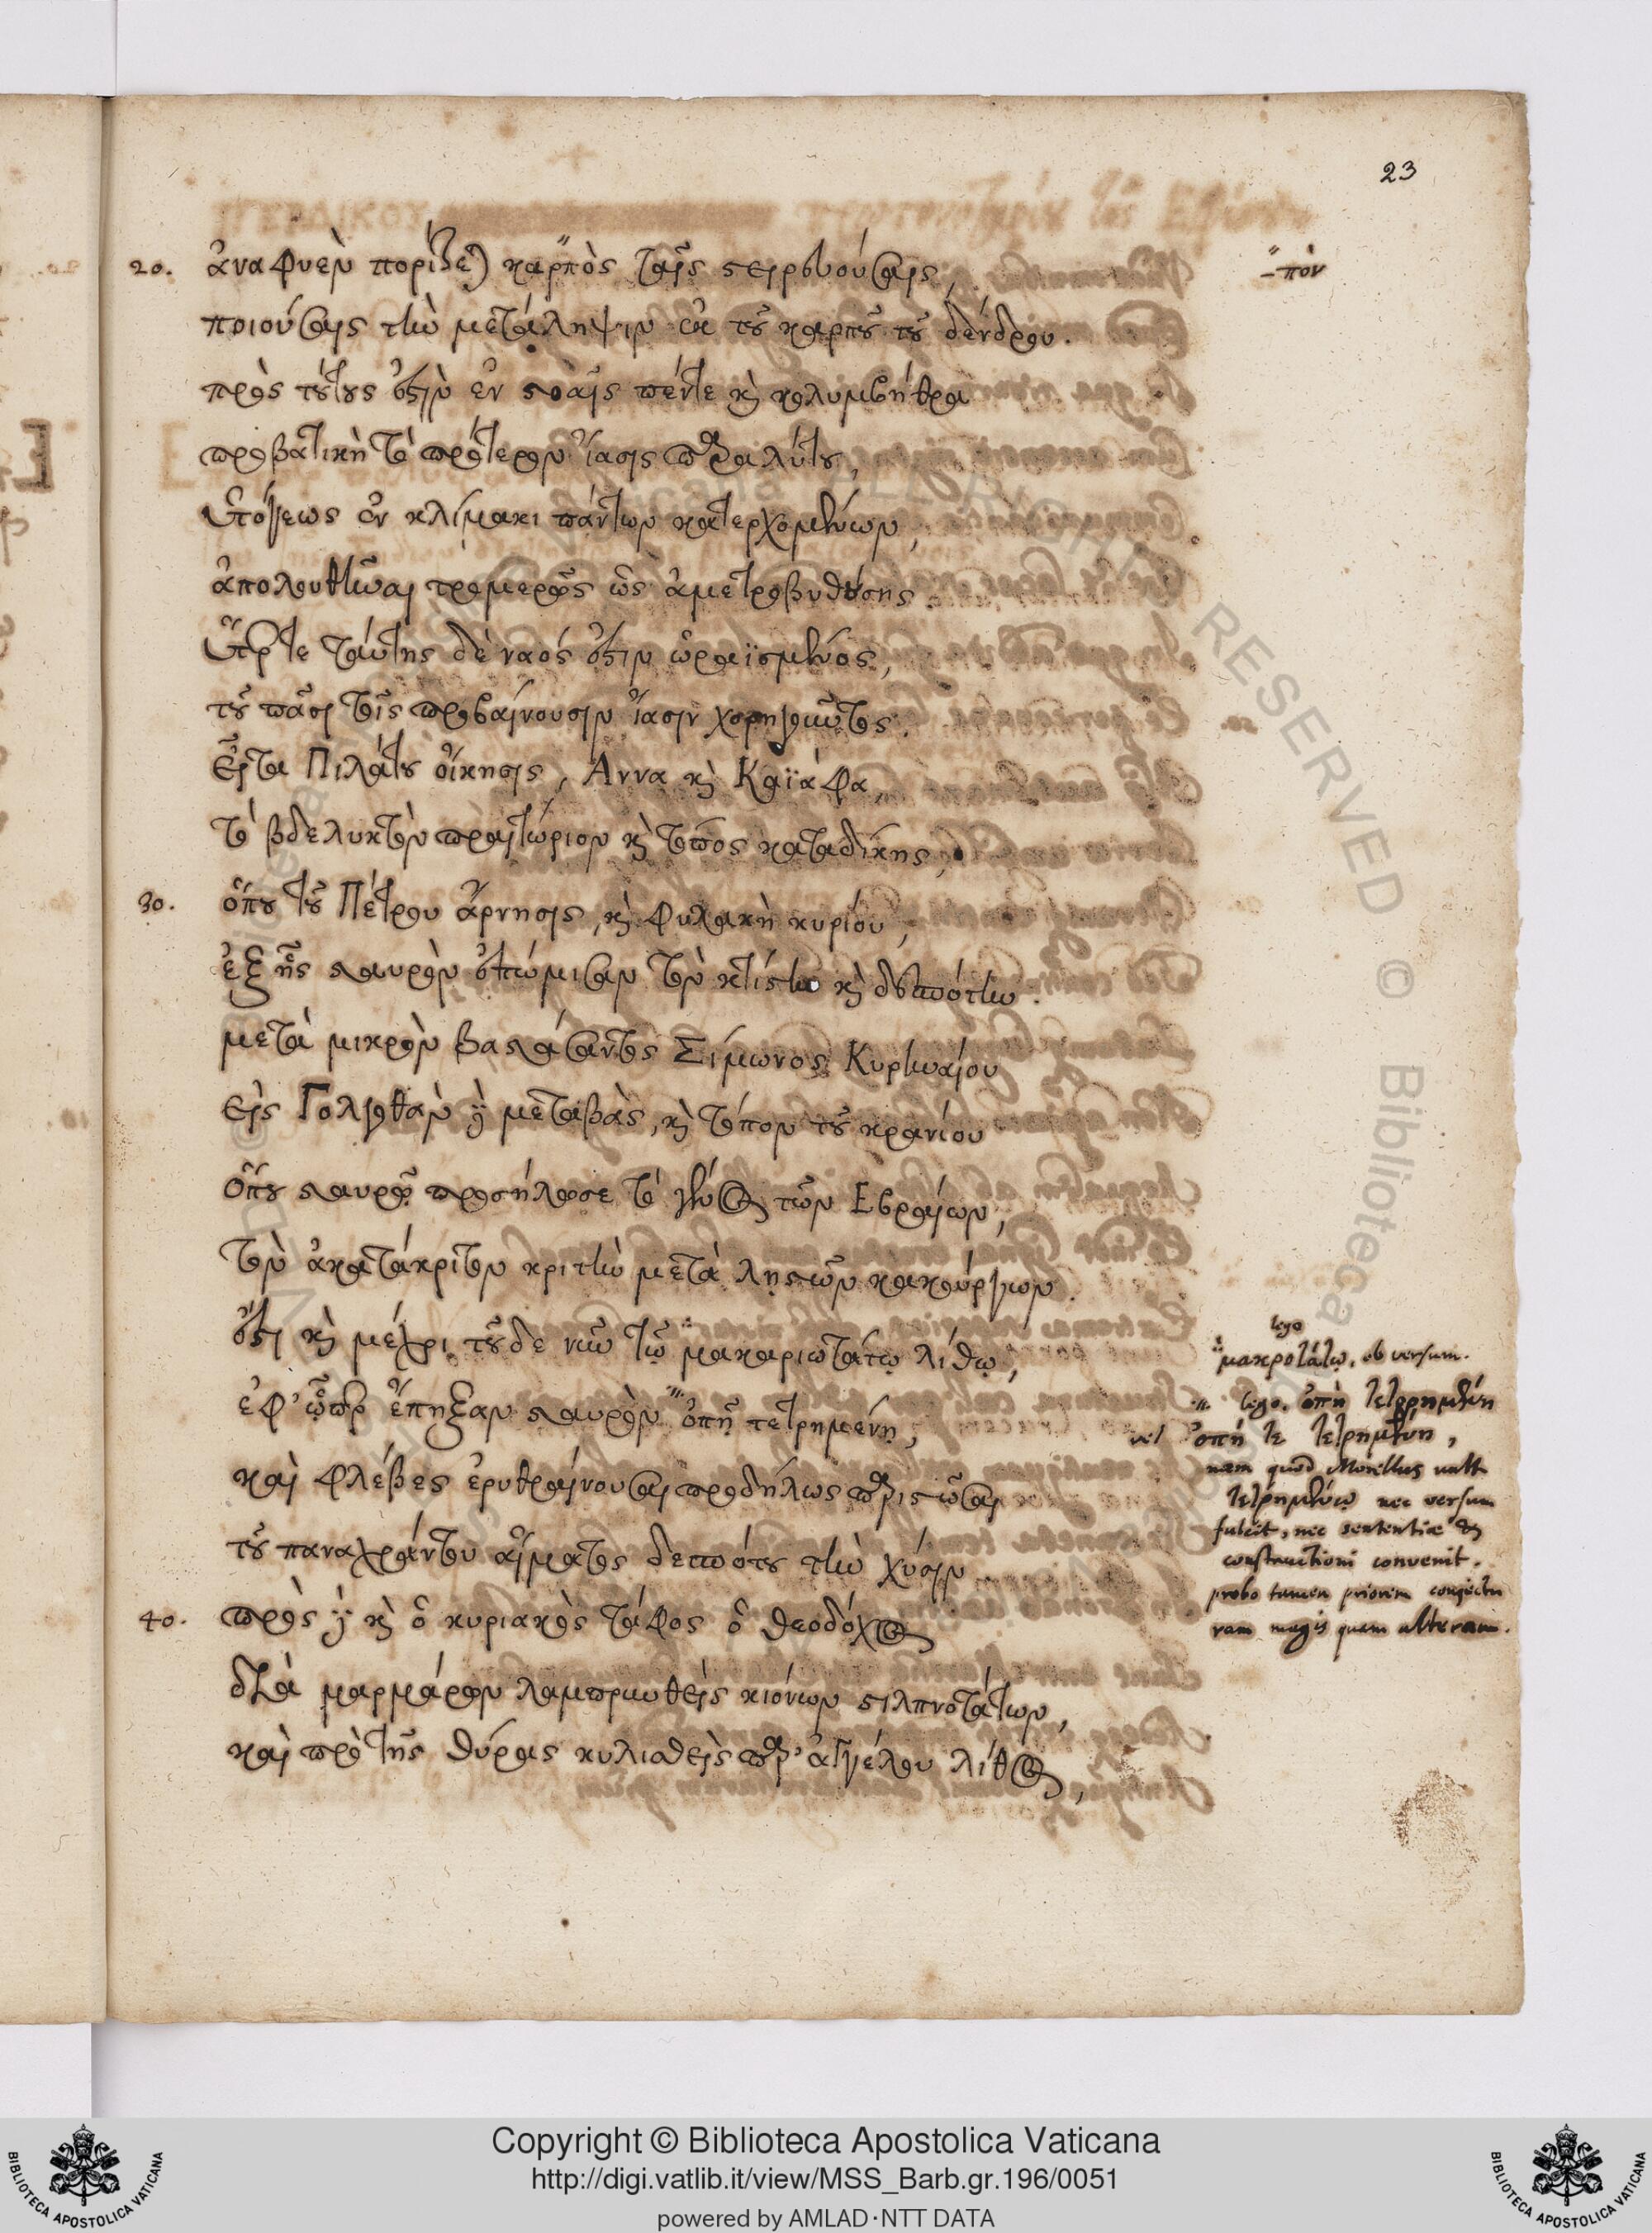 23
20. ἀναφυὲν πορίζεται καρπὸς ταῖς στειρευούσαις, –πὸν
ποιούσαις τὴν μετάληψιν ἐκ τοῦ καρποῦ τοῦ δένδρου.
πρὸς τούτοις ἐστὶν ἐν στοαῖς πέντε καὶ κολυμβήθρα
προβατικὴ τὸ πρότερον ἴασις παραλύτου,
ὑπόψεως ἐν κλίμακι πάντων κατερχομένων,
ἀπολουθῆναι τρομερῶς ὡς ἀμετροβυθούσης.
ὕπερτε ταύτης δὲ ναός ἐστιν ὡραϊσμένος,
τοῦ πᾶσι τοῖς προβαίνουσιν ἴασιν χορηγοῦντος.
εἶτα Πιλάτου οἴκησις, Αννα καὶ Καϊάφα,
τὸ βδελυκτὸν πραιτώριον καὶ τόπος καταδίκης,
30. ὅπου τοῦ Πέτρου ἄρνησις, καὶ φυλακὴ κυρίου,
ἐξ ἧς σταυρὸν ἐπώμισαν τὸν κτίστην καὶ δεσπότην.
μετὰ μικρὸν βαστάσαντος Σίμωνος Κυρηναίου
εἰς Γολγοθὰν γὰρ μεταβὰς, καὶ τόπον τοῦ κρανίου
ὅπου σταυρῷ προσήλωσε τὸ γένος τῶν Εβραίων,
τὸν ἀκατάκριτον κριτὴν μετὰ λῃστῶν κακούργων.
ἔστι καὶ μέχρι τοῦδε νῦν τῷ μακαριωτάτῳ λίθῳ,
ἐφ' ᾧπερ ἔπηξαν σταυρὸν ὀπῇ τετρημένῃ,
καὶ φλέβες ἐρυθραίνουσαι προδήλως παριστῶσαι
τοῦ παναχράντου αἵματος δεσπότου τὴν χύσιν.
40. πρὸς γὰρ καὶ ὁ κυριακὸς τάφος ὁ θεοδόχος
διὰ μαρμάρων λαμπρυνθεὶς κιόνων στιλπνοτάτων,
καὶ πρὸ τῆς θύρας κυλισθεὶς παρ' ἀγγέλου λίθος,
lego
μακροτάτῳ, ob versum.
lego. ὀπὴ τετρημένη
vel ὀπή τε τετρημένη,
nam quod Morellus vult
τετρημένῳ nec versum
fulcit, nec sententiæ &
constructioni convenit.
probo tamen priorem conjectu
ram magis quam alteram.
Copyright © Biblioteca Apostolica Vaticana
http://digi.vatlib.it/view/MSS_Barb.gr.196/0051
powered by AMLAD·NTT DATA
BIBLIOTECA APOSTOLICA VATICANA
BIBLIOTECA APOSTOLICA VATICANA